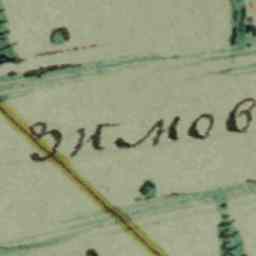 зимов